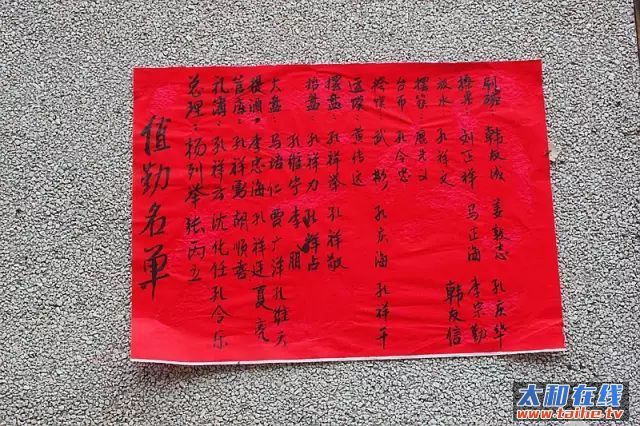 值勤名单
总理：杨列举 张丙立
礼簿：孔祥云 沈化任 孔令东
管库：孔祥勇 胡顺喜
接酒：李忠海 孔祥廷 夏亮
大盘 马培仁 贾广洋 孔维天
孔维宁 李朋
招盘：孔祥力 孔祥占
摆盘：孔祥举 孔祥敬
黄传运
武彬 孔庆海 孔祥平
台布：孔令忠
摆家：展先义
放水：孔祥文 韩友信
刘正祥 马正海 李宗勤
刷碗：韩友成 姜敦志 孔庆华
太和在线
www.taihe.tv